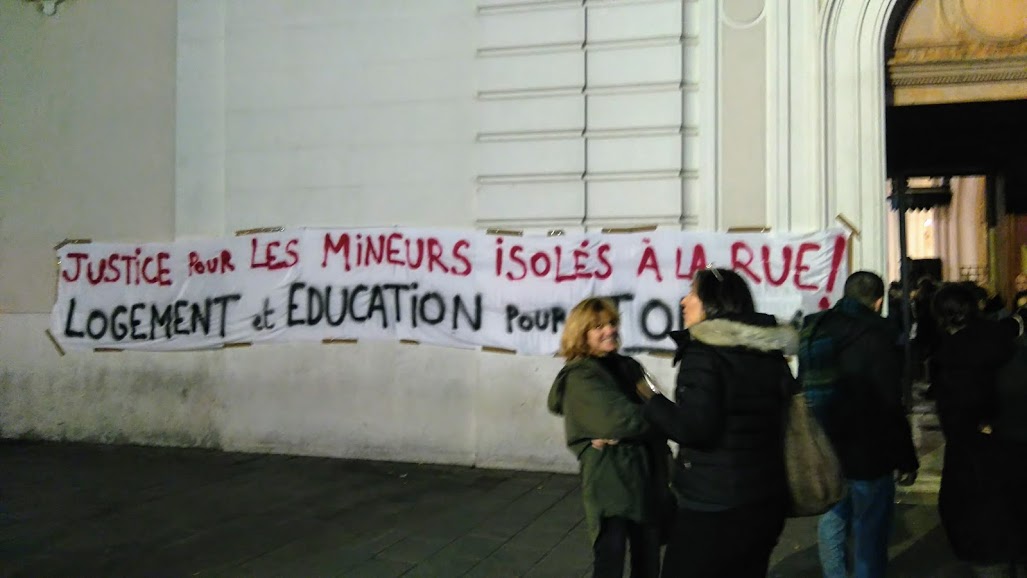 JUSTICE POUR LES MiNEURS iSOLÉS À LA RUE!
LOGEMENT et EDUCATiON POUR